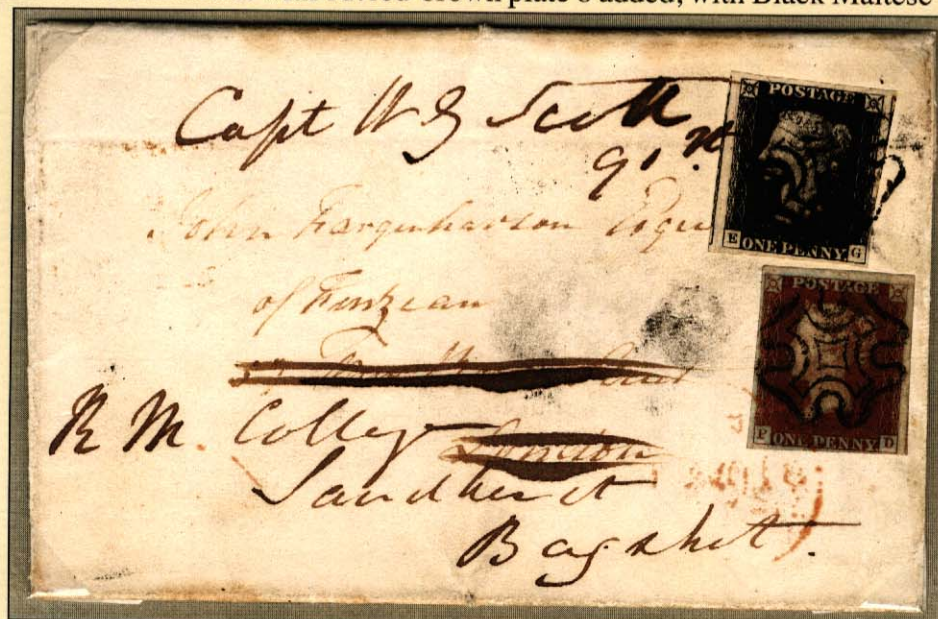 crown plate 8 added, with Black Maltese
Capt W G Scott
91st
John Farquharson Esqre
of Finzean
R M. College
London
Sandhurst
Bagshot.
POSTAGE
E ONE PENNY. G
POSTAGE
P ONE PENNY D